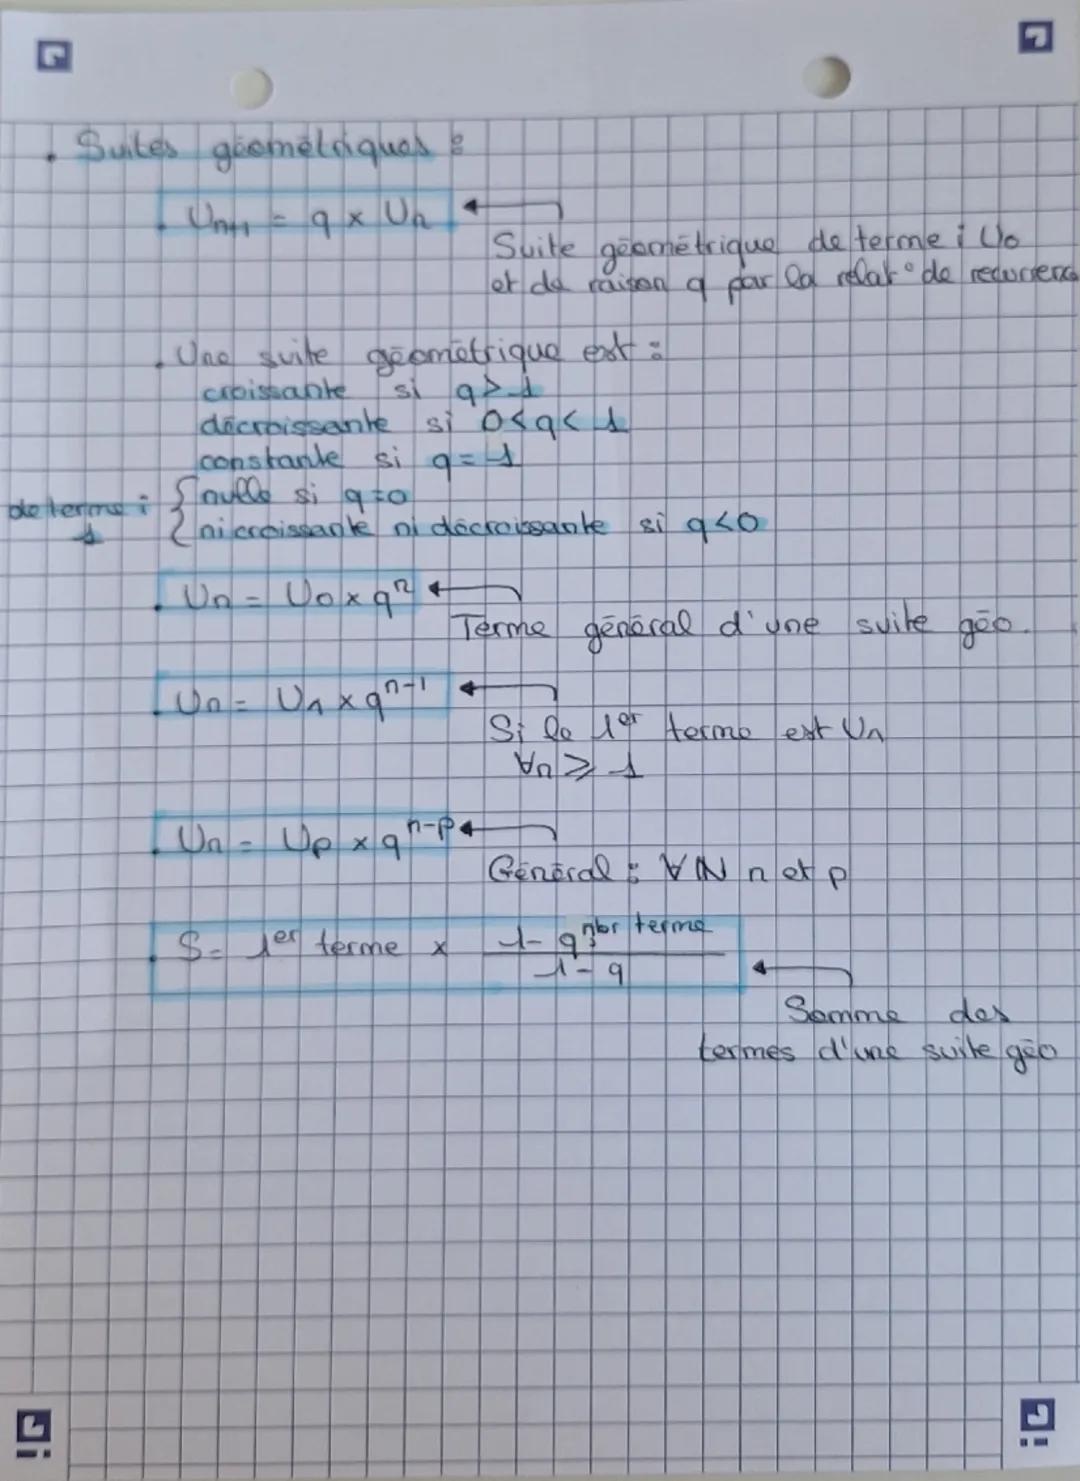 . Suites géométriques :
. Un+1 = q x Un
Suite géométrique de terme i U0
et de raison q par la relat° de recurrence
. Une suite géométrique est :
croissante si q > 1
décroissante si 0 < q < 1
constante si q = 1
de terme i
1
nulle si q = 0
ni croissante ni décroissante si q < 0
. Un = U0 x qⁿ
Terme général d'une suite géo.
. Un = U1 x qⁿ⁻¹
Si le 1er terme est U1
∀n ⩾ 1
. Un = Up x qⁿ⁻ᵖ
Général : ∀ ℕ n et p
. S = 1er terme x (1 - q^nbr terme) / (1 - q)
Somme des
termes d'une suite géo